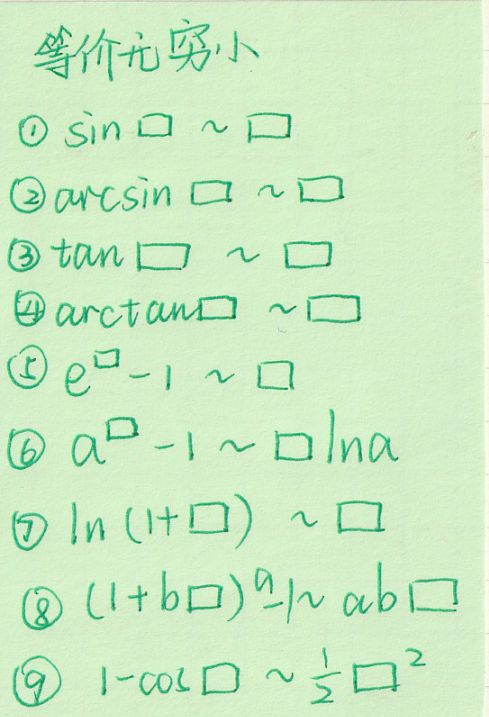 等价无穷小
① sin □ ~ □
② arcsin □ ~ □
③ tan □ ~ □
④ arctan □ ~ □
⑤ e^□ - 1 ~ □
⑥ a^□ - 1 ~ □ lna
⑦ ln (1+□) ~ □
⑧ (1+b□)^a - 1 ~ ab□
⑨ 1-cos □ ~ 1/2 □^2